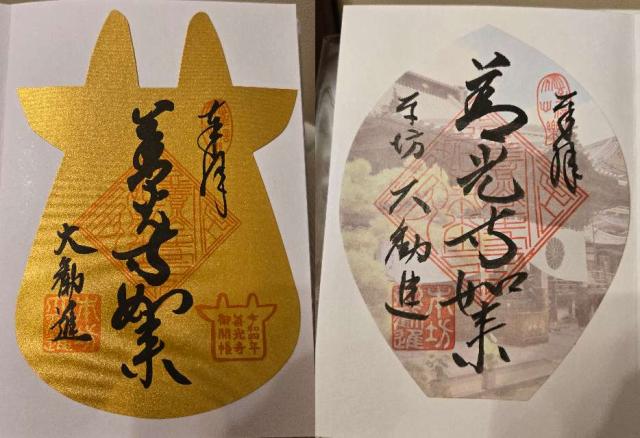 奉拝
善光寺如来
大勧進
令和四年
善光寺
御開帳
奉拝
善光寺如来
本坊 大勧進
本坊